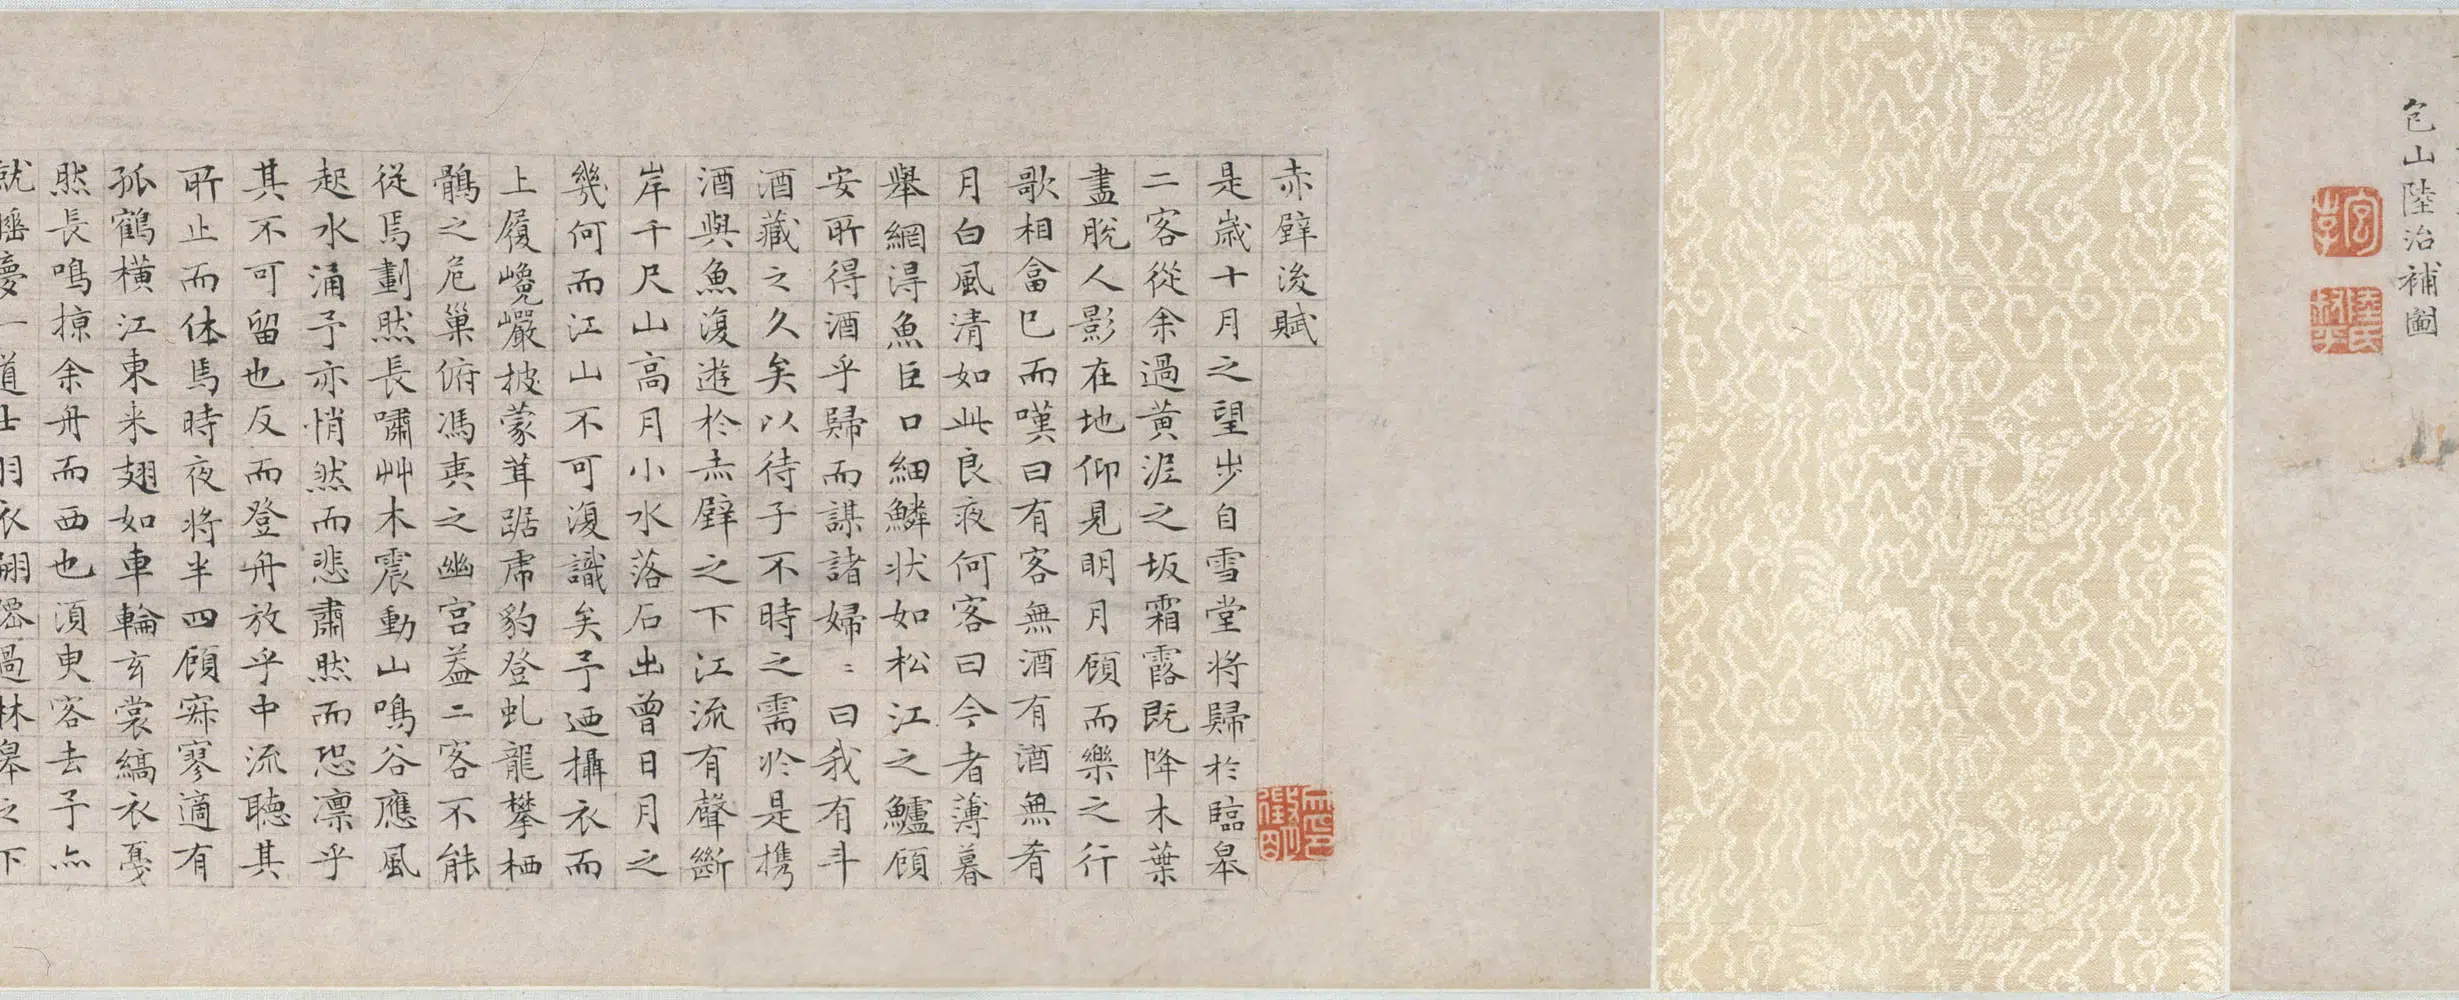 包山陸治補圖
陸氏叔平
赤壁後賦
是歲十月之望步自雪堂將歸於臨皋
二客從余過黃泥之坂霜露既降木葉
盡脫人影在地仰見明月顧而樂之行
歌相畣已而嘆曰有客無酒有酒無肴
月白風清如此良夜何客曰今者薄暮
舉網得魚巨口細鱗狀如松江之鱸顧
安所得酒乎歸而謀諸婦〻曰我有斗
酒藏之久矣以待子不時之需於是携
酒與魚復遊於赤壁之下江流有聲斷
岸千尺山高月小水落石出曾日月之
幾何而江山不可復識矣予迺攝衣而
上履巉巖披蒙茸踞虎豹登虬龍攀栖
鶻之危巢俯馮夷之幽宮葢二客不能
從焉劃然長嘯艸木震動山鳴谷應風
起水涌予亦悄然而悲肅然而恐凛乎
其不可留也反而登舟放乎中流聽其
所止而休焉時夜將半四顧寂寥適有
孤鶴橫江東来翅如車輪玄裳縞衣戛
然長鳴掠余舟而西也須臾客去予亦
就睡夢一道士羽衣翩僊過臨皋之下